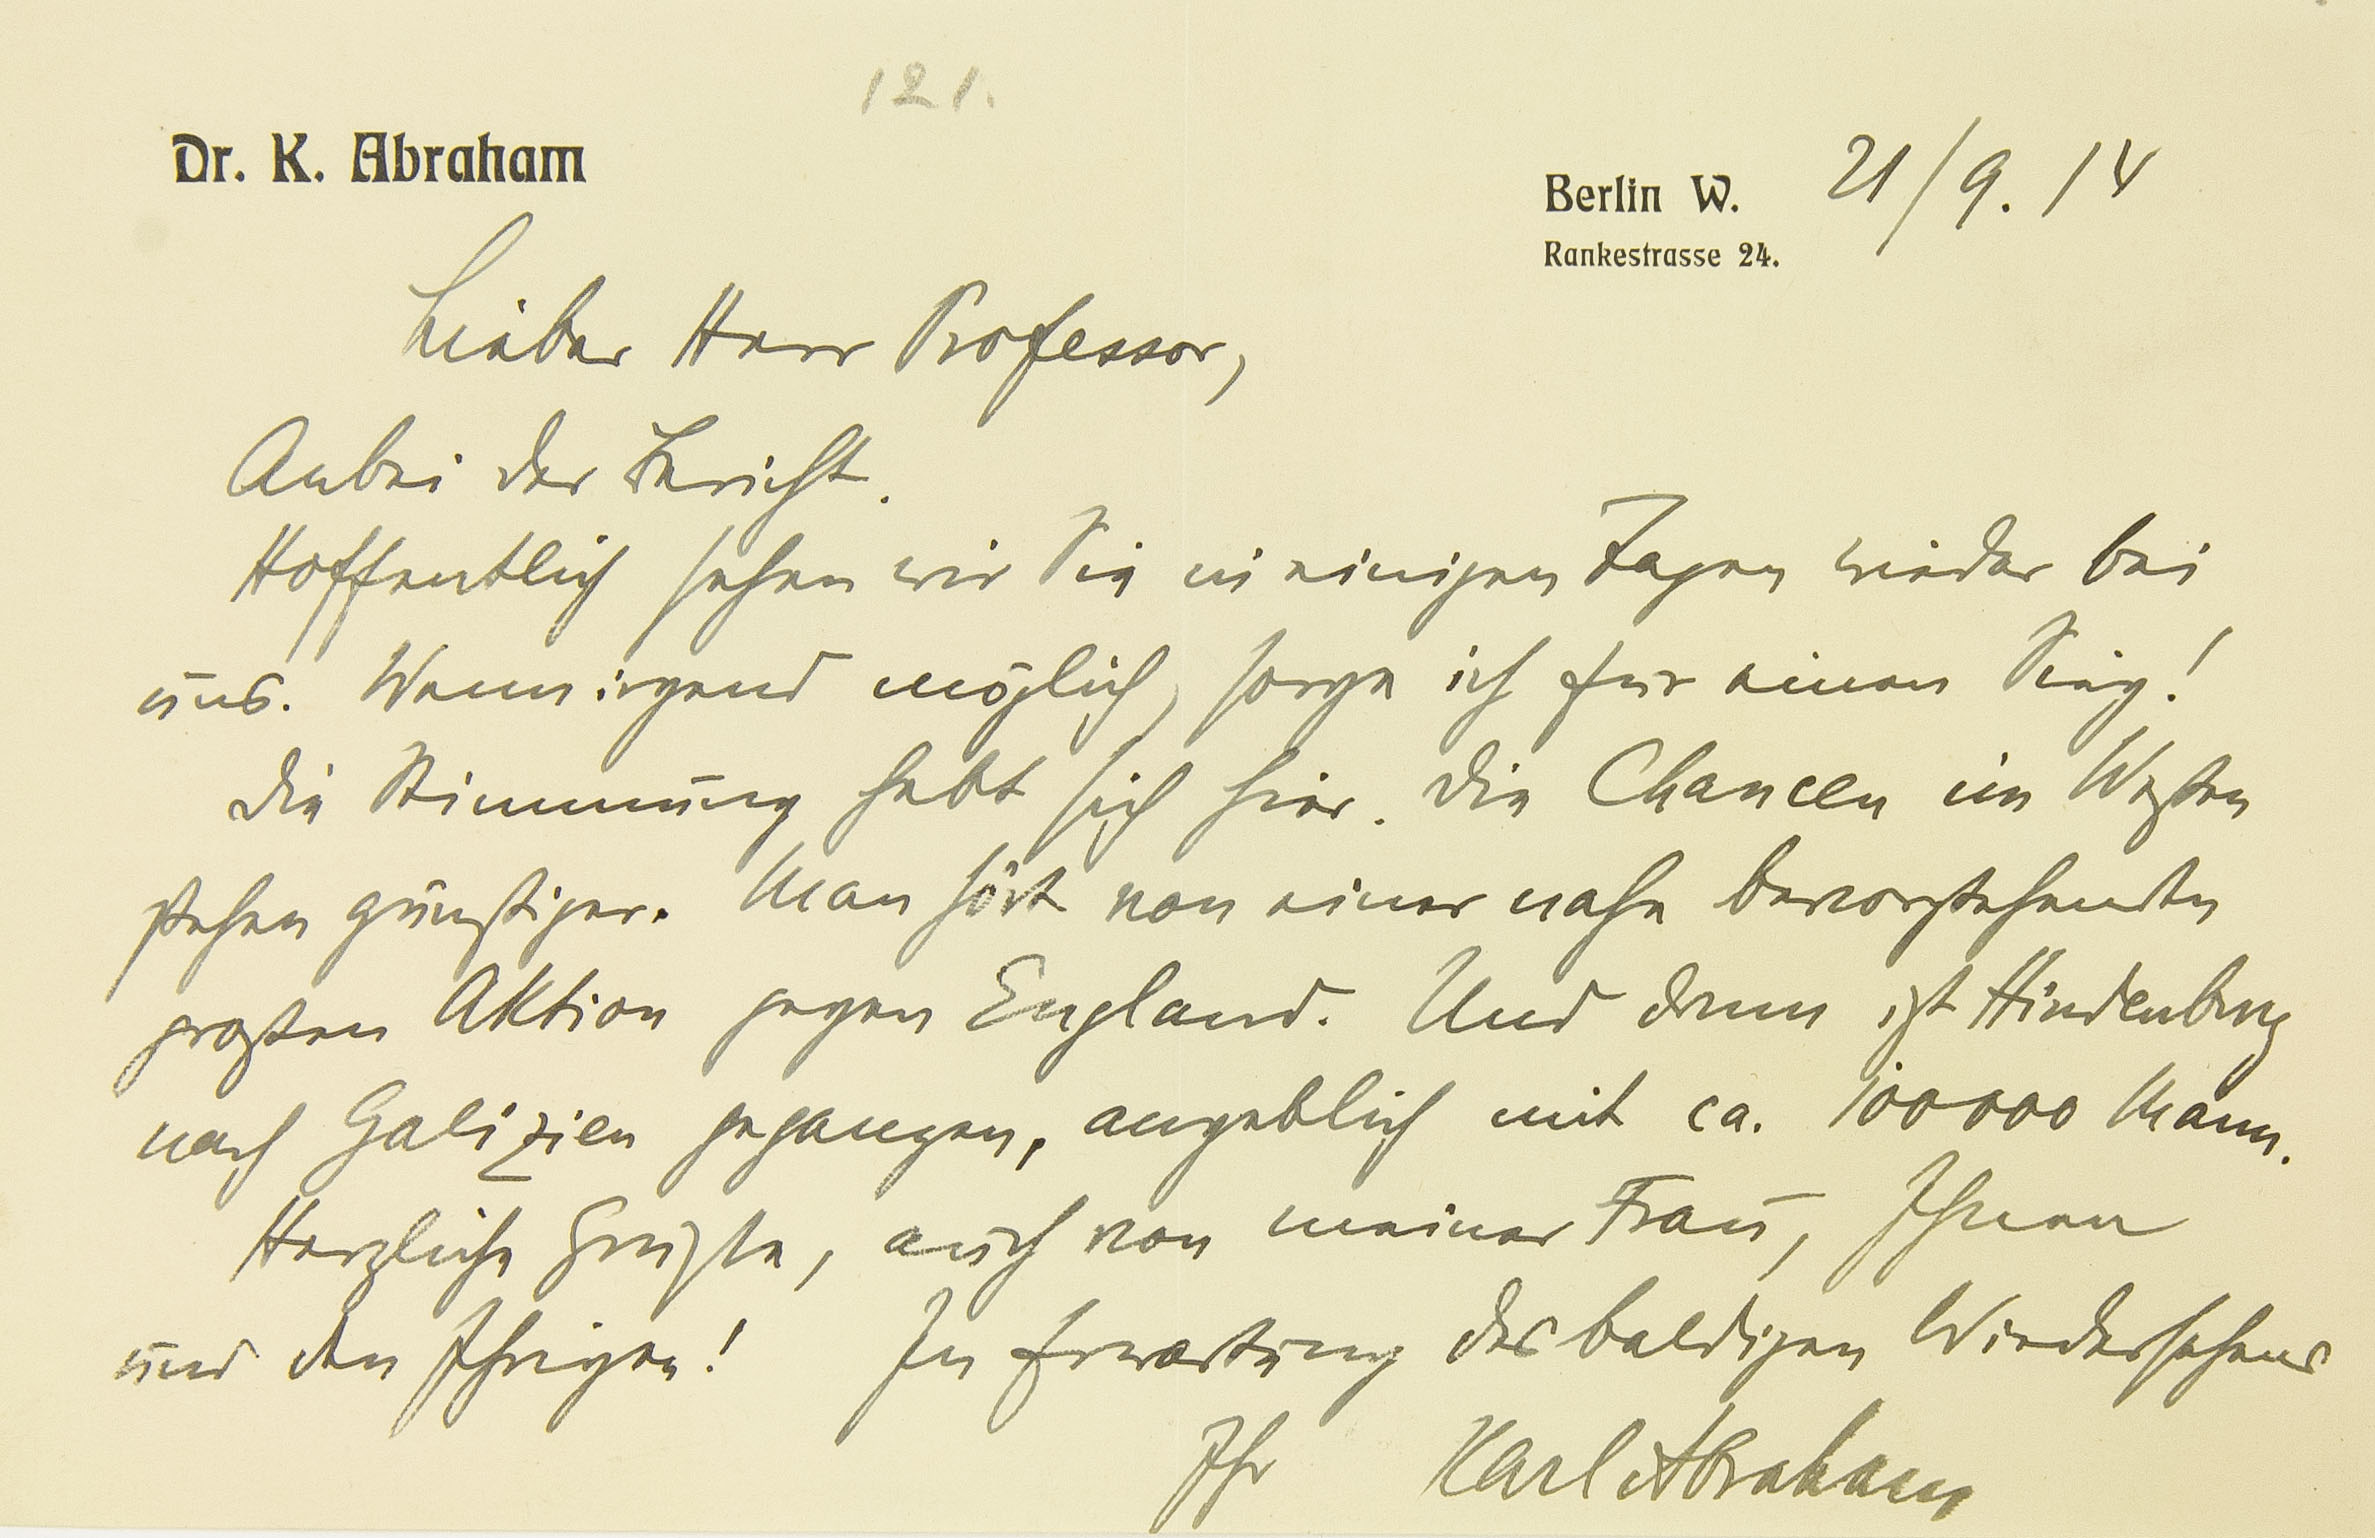 121.
Dr. K. Abraham
Berlin W. 21/9.14
Rankestrasse 24.
Lieber Herr Professor,
Anbei der Bericht.
Hoffentlich sehen wir Sie in einigen Tagen wieder bei
uns. Wenn irgend möglich, sorge ich für einen Sieg!
Die Stimmung hebt sich hier. Die Chancen im Westen
stehen günstiger. Man hört von einer nahe bevorstehenden
großen Aktion gegen England. Und dann ist Hindenburg
nach Galizien gegangen, angeblich mit ca. 100000 Mann.
Herzliche Grüße, auch von meiner Frau, Ihnen
und den Ihrigen! In Erwartung des baldigen Wiedersehens
Ihr Karl Abraham